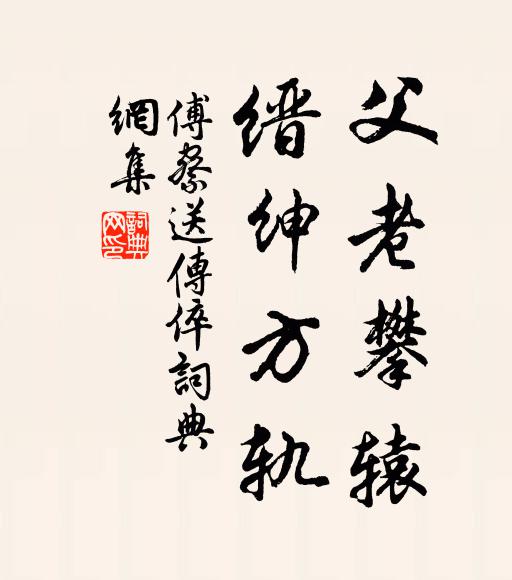 父老攀辕
缙绅方轨
傅察送傅倅詞典
網集
詞典
网印